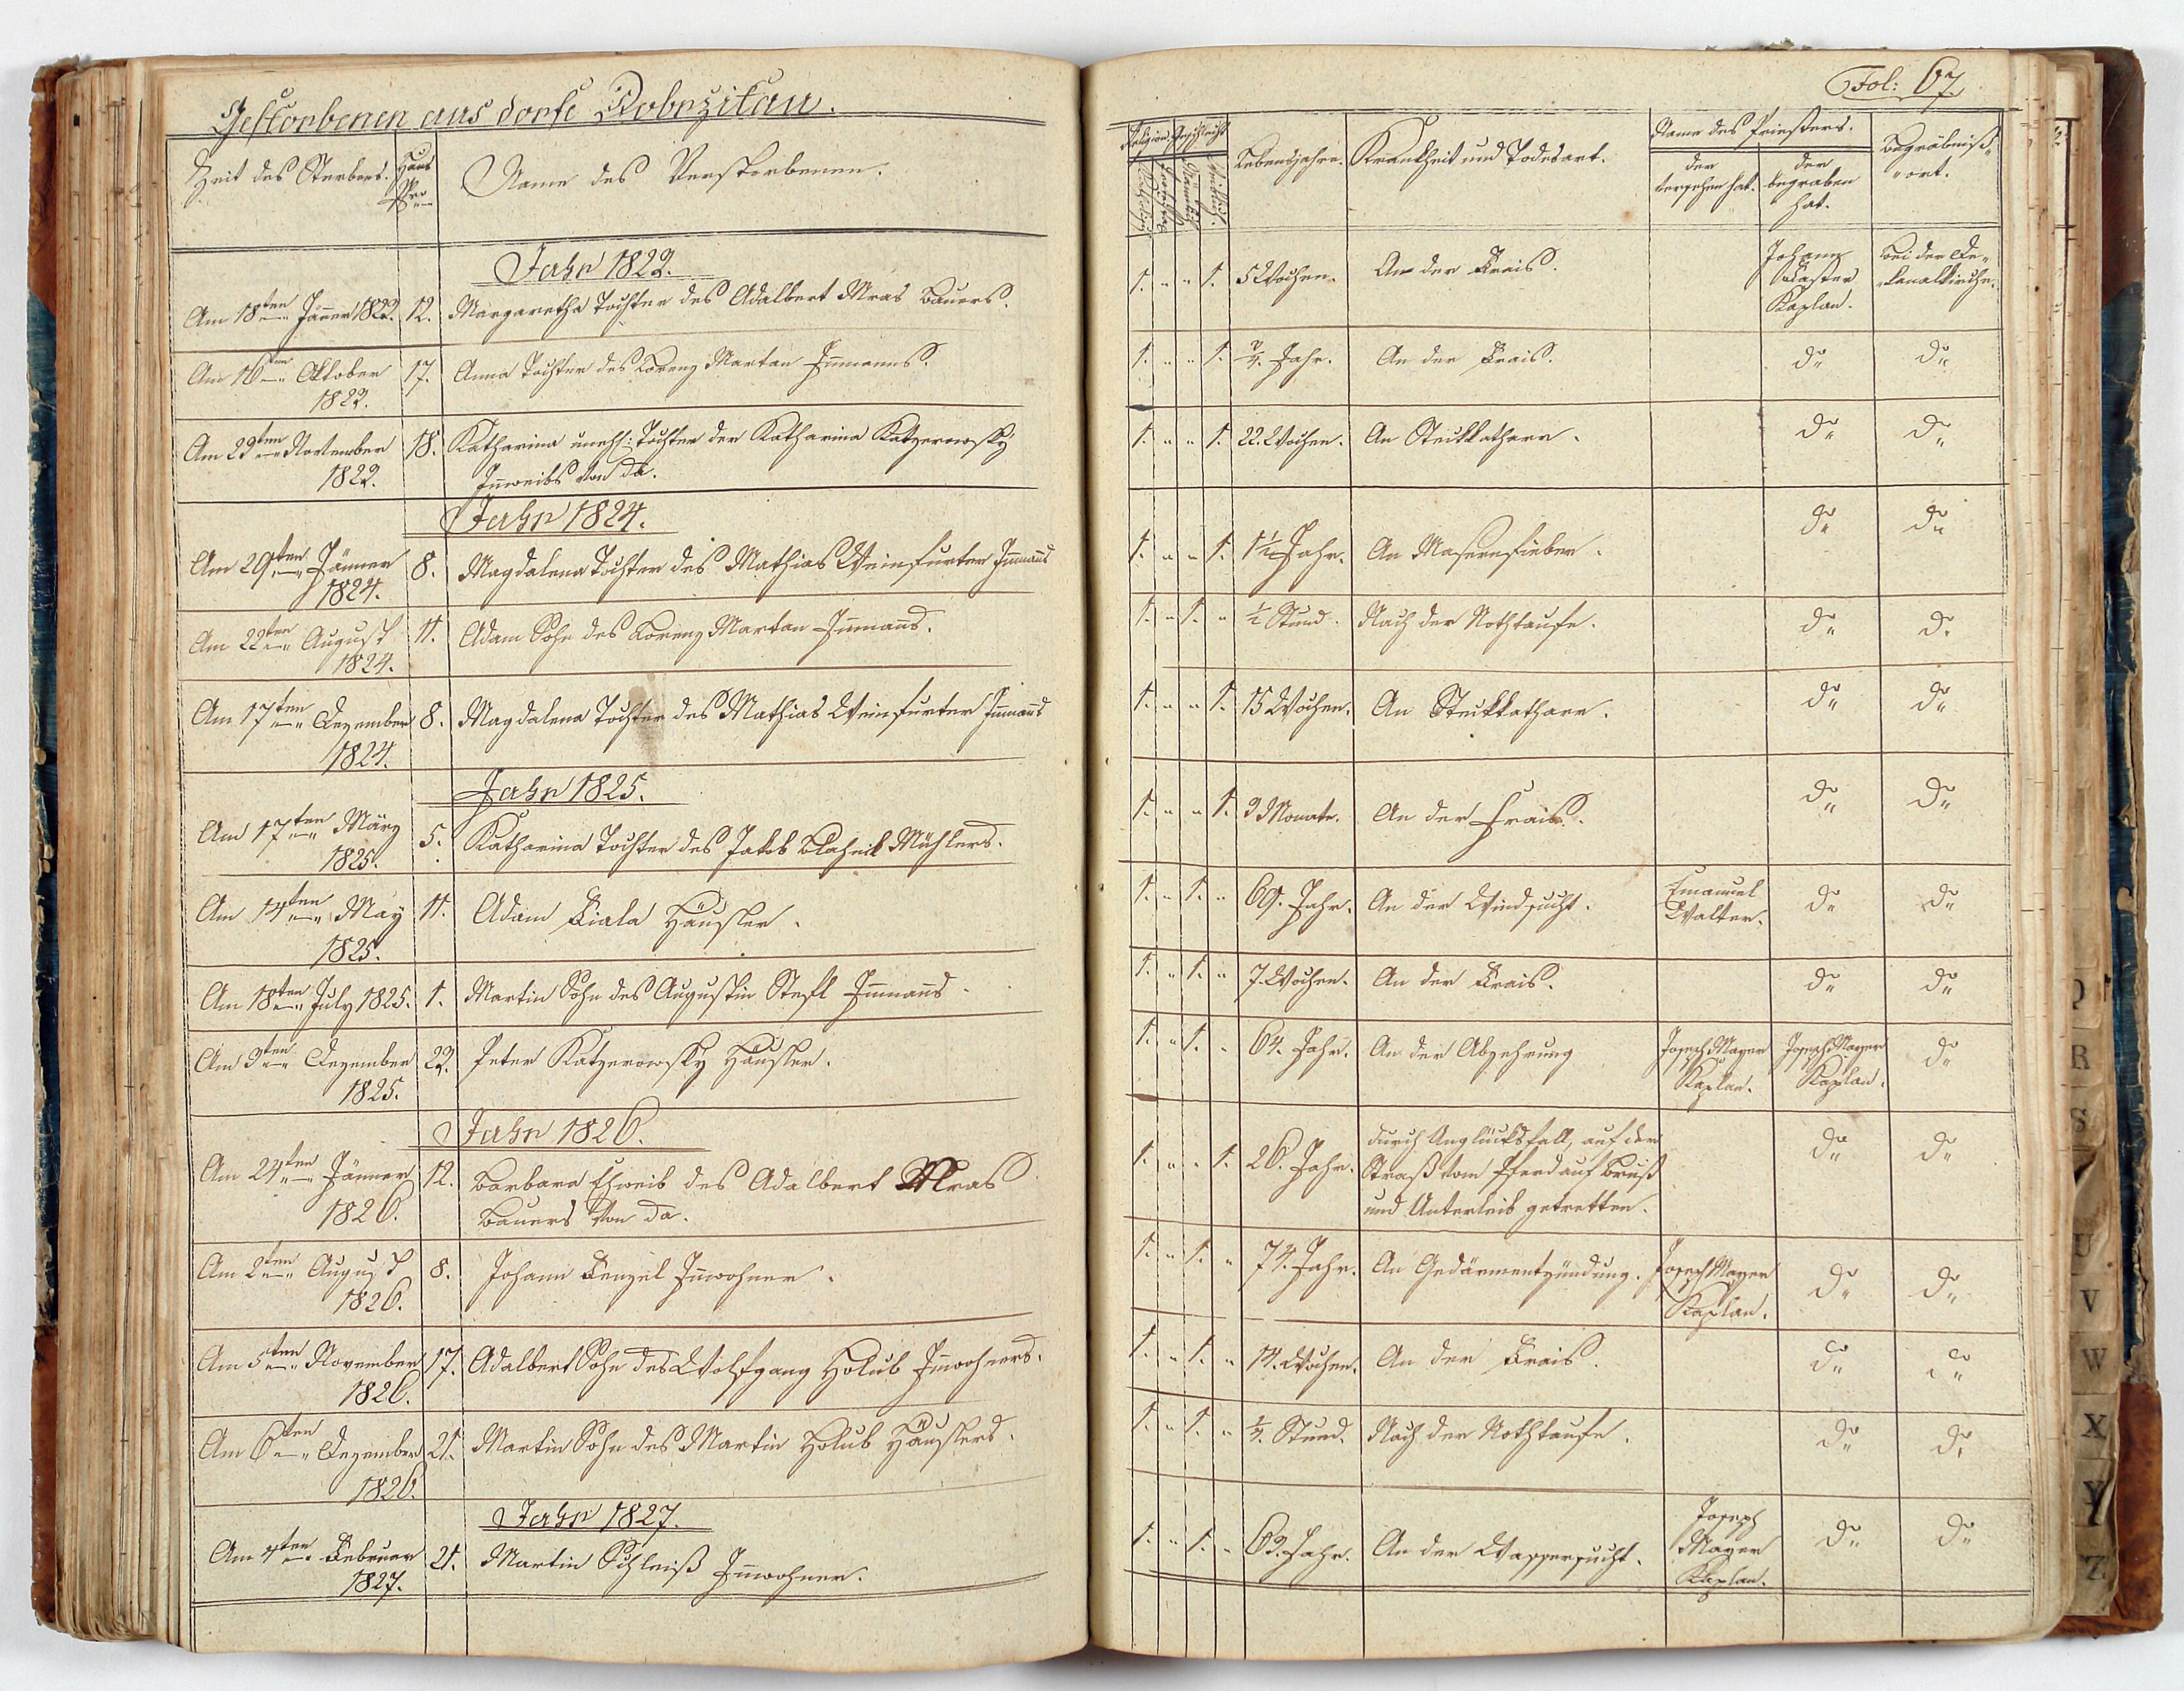 Gestorbenen aus dorfe Dobrzitau.
Zeit des Sterbens. Haus Nro Name des Verstorbenen.
Jahr 1822.
Am 18ten Jänner 1822. 12. Margaretha Tochter des Adalbert Mras Bauers.
Am 16ten Oktober 17. Anna Tochter des Lorenz Martan Inmanns.
1822.
Am 29ten November 18. Katharina unehl: Tochter der Katharina Katzerowsky
1822. Inweibs von da.
Jahr 1824.
Am 29ten Jänner 8. Magdalena Tochter des Mathias Weinfurter Inmanns
1824.
Am 22ten August 11. Adam Sohn des Lorenz Martan Inmanns.
1824.
Am 17ten Dezember 8. Magdalena Tochter des Mathias Weinfurter Inmanns
1824.
Jahr 1825.
Am 17ten März 5. Katharina Tochter des Jakob Blaheik Mühlers.
1825.
Am 14ten May 11. Adam Fiala Häusler.
1825.
Am 18ten July 1825. 1. Martin Sohn des Augustin Stefl Inmanns.
Am 3ten Dezember 22. Peter Katzerowsky Häusler.
1825.
Jahr 1826.
Am 24ten Jänner 12. Barbara Eheweib des Adalbert Mras
1826. Bauers von da.
Am 2ten August 8. Johann Denzel Inwohner.
1826.
Am 5ten November 17. Adalbert Sohn des Wolfgang Holub Inwohners.
1826.
Am 6ten Dezember 21. Martin Sohn des Martin Holub Häuslers.
1826.
Jahr 1827.
Am 4ten Februar 21. Martin Schleiß Inwohner.
1827.
Fol: 67
Religion Geschlecht Lebensjahre. Krankheit und Todesart. Name des Priesters. Begräbniß-
der versehen hat. der begraben hat. ort.
1. " " 1. 5 Wochen. An der Frais. Johann Kaplan. Bei der De-
kanalkirche.
1. " " 1. 3/4. Jahr. An der Frais. do do
1. " " 1. 22. Wochen. An Steckkatharr. do do
1. " " 1. 1 1/2 Jahr. An Masernfieber. do do
1. " 1. " 1/2 Stund. Nach der Nothtaufe. do do
1. " " 1. 15 Wochen. An Steckkatharr. do do
1. " " 1. 3 Monate. An der Frais. do do
1. " 1. " 69. Jahr. An der Windsucht. Emanuel Walter. do do
1. " 1. " 7. Wochen. An der Frais. do do
1. " 1. " 64. Jahr. An der Abzehrung Joseph Mayer Kaplan. Joseph Mayer Kaplan. do
1. " " 1. 26. Jahr. durch Unglücksfall, auf der do do
Straß vom Pferd auf Brust
und Unterleib getretten.
1. " 1. " 74. Jahr. An Gedärmentzündung. Joseph Mayer Kaplan. do do
1. " 1. " 14. Wochen. An der Frais. do do
1. " 1. " 1/4. Stund. Nach der Nothtaufe. do do
1. " 1. " 63. Jahr. An der Wassersucht. Joseph Mayer Kaplan. do do
Q
R
S
U
V
W
X
Y
Z